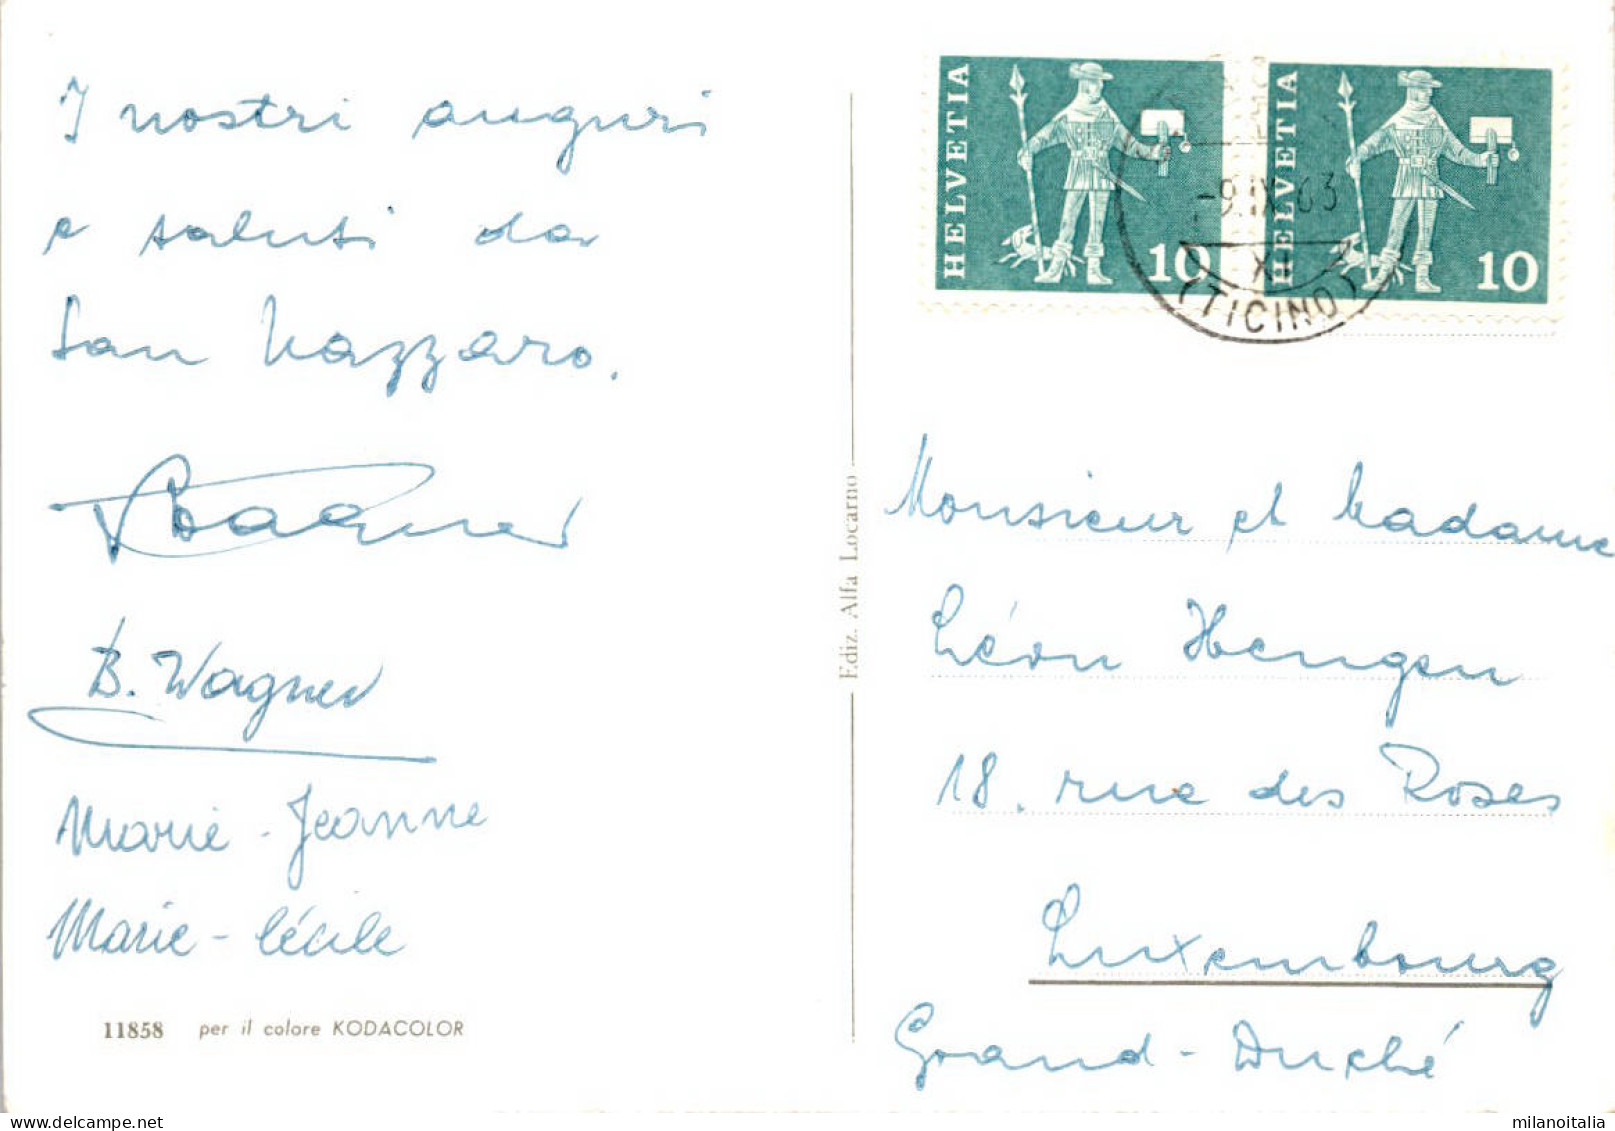 I nostri auguri
e saluti da
San Nazzaro.
B. Wagner
Marie-Jeanne
Marie-Cécile
11858 per il colore KODACOLOR
Ediz. Alfa Locarno
HELVETIA 10
HELVETIA 10
-9.IX.63
XI
(TICINO)
Monsieur et Madame
Léon Hengen
18. rue des Roses
Luxembourg
Grand-Duché
milanoitalia